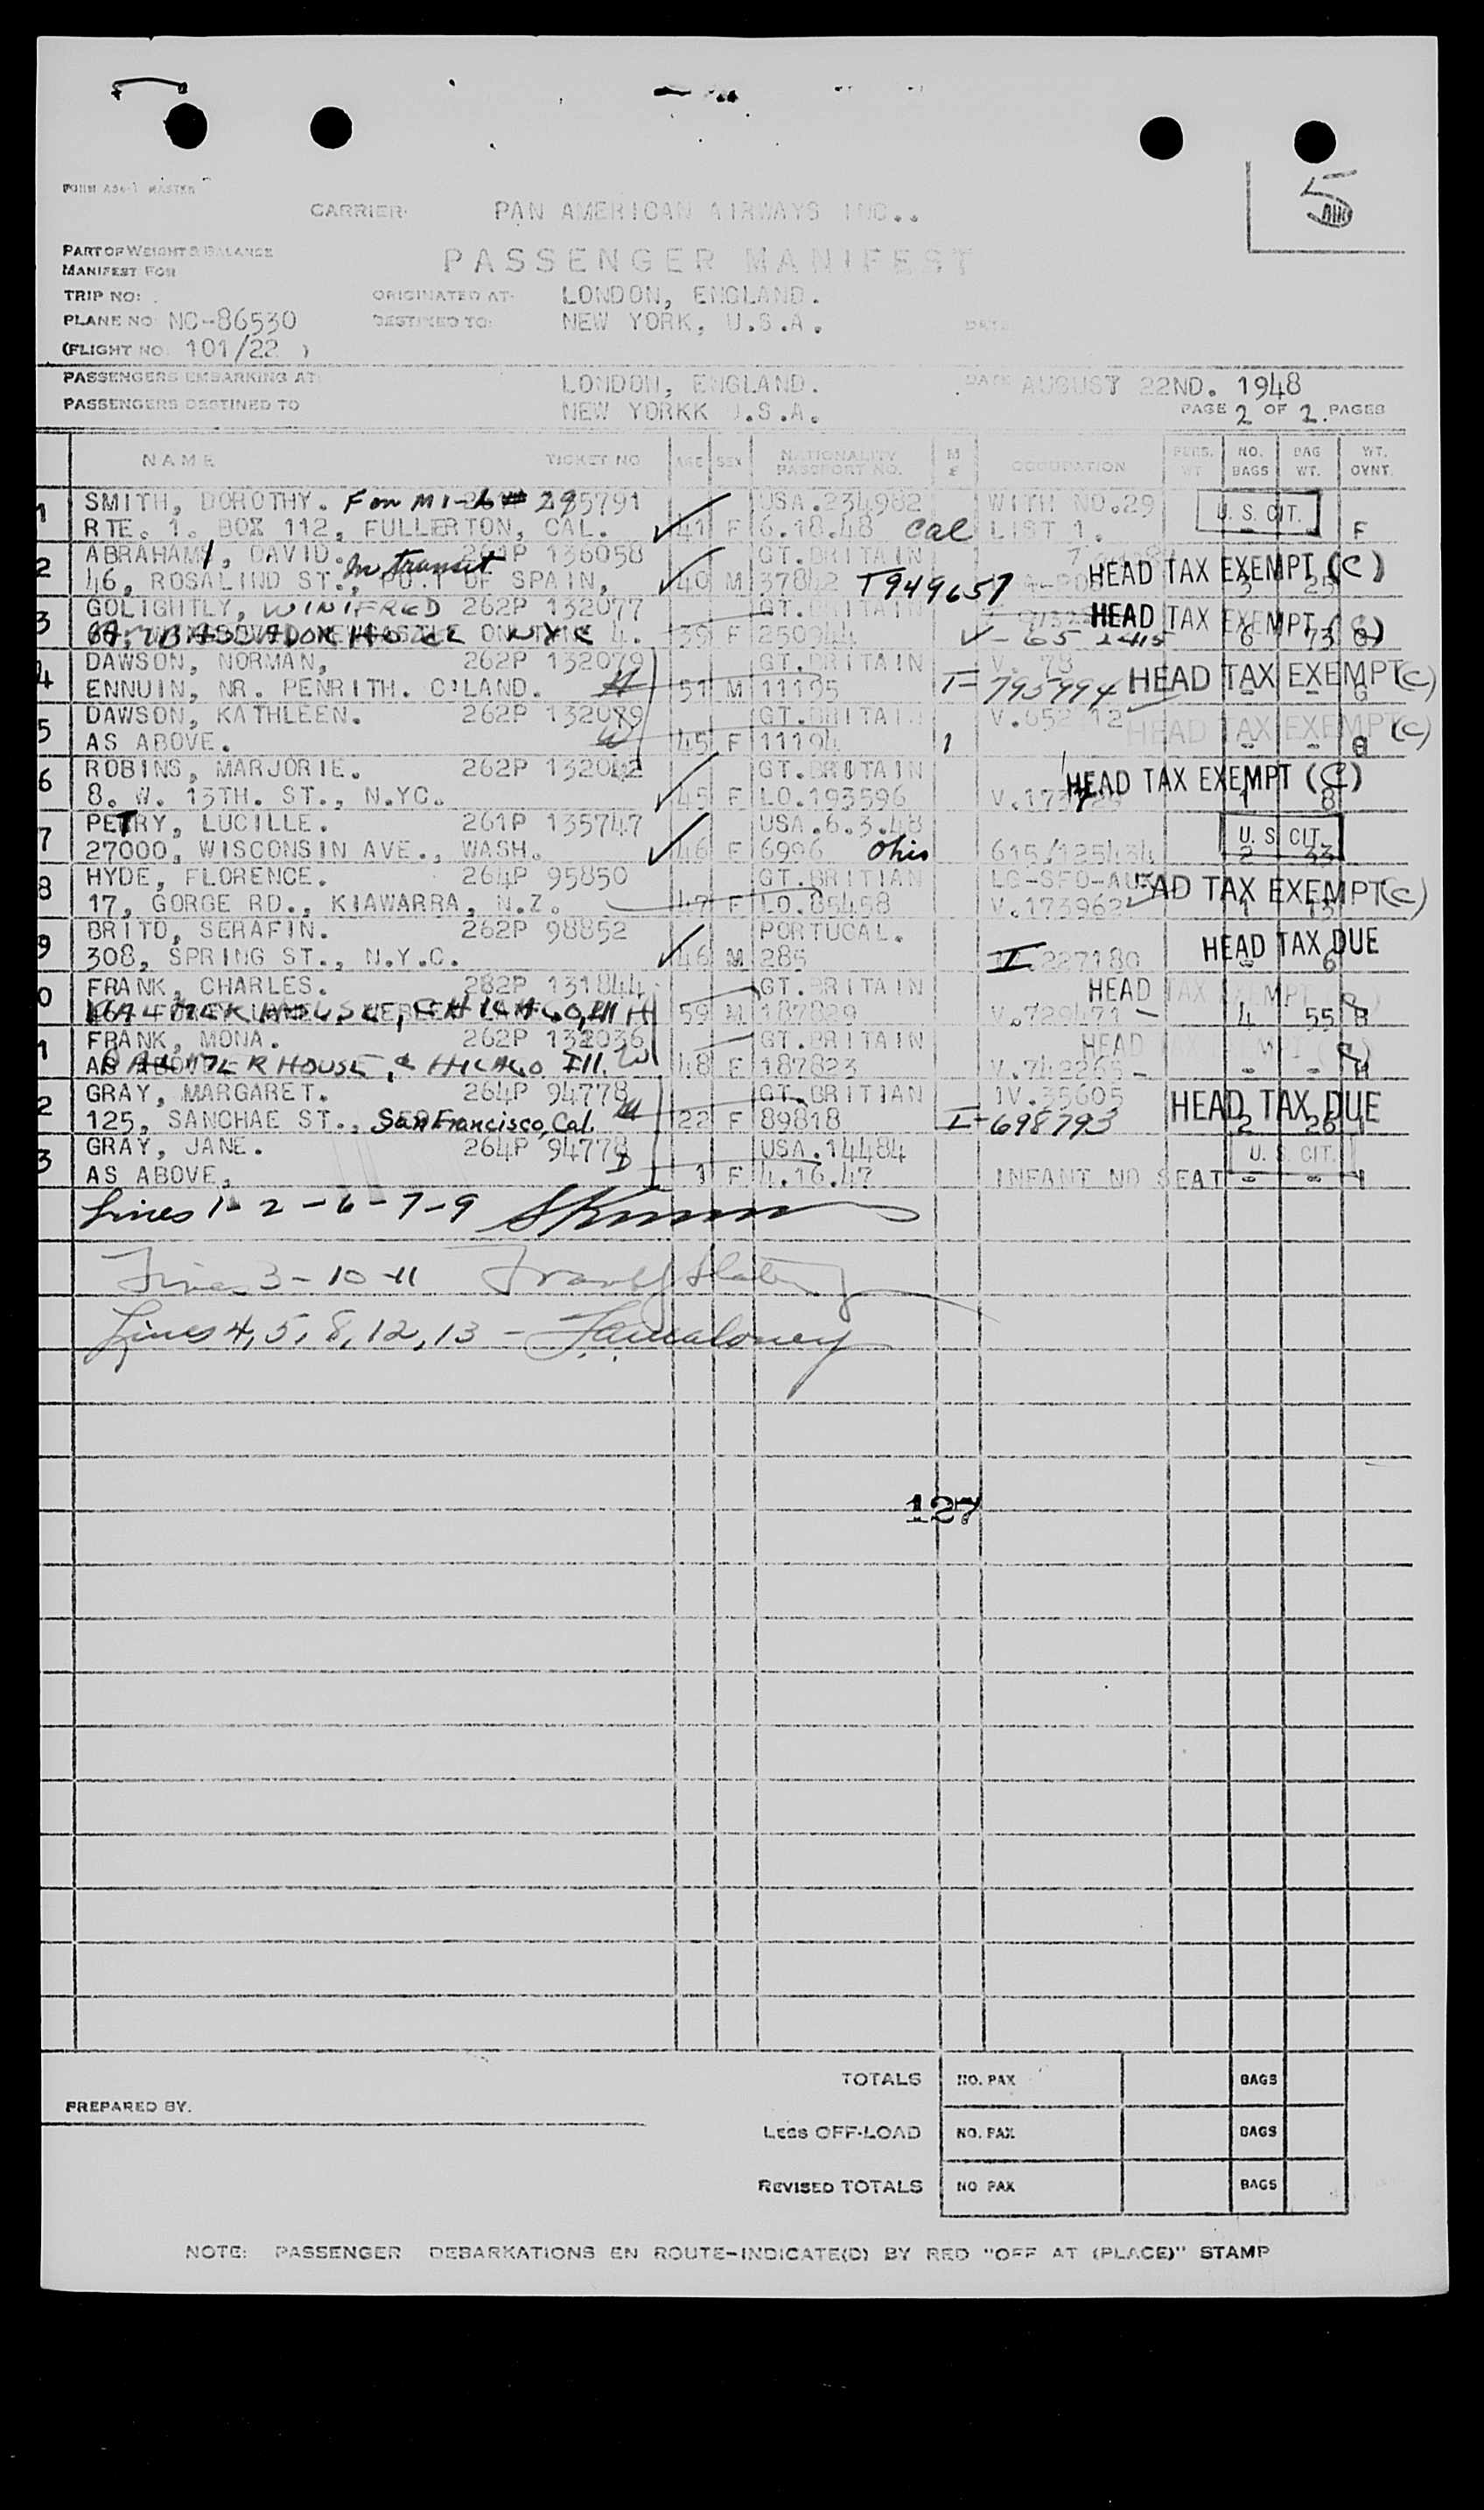 5
FORM A34-1 MASTER
CARRIER PAN AMERICAN AIRWAYS INC..
PART OF WEIGHT & BALANCE
MANIFEST FOR
PASSENGER MANIFEST
TRIP NO: ORIGINATED AT: LONDON, ENGLAND.
PLANE NO NC-86530 DESTINED TO: NEW YORK, U.S.A. DATE
(FLIGHT NO. 101/22 )
PASSENGERS EMBARKING AT: LONDON, ENGLAND. DATE AUGUST 22ND. 1948
PASSENGERS DESTINED TO NEW YORKK U.S.A. PAGE 2 OF 2. PAGES
NAME TICKET NO AGE SEX NATIONALITY PASSPORT NO. M & OCCUPATION PERS. WT NO. BAGS BAG WT. WT. OVNT.
1 SMITH, DOROTHY. 295791 USA.234982 WITH NO.29 U. S. CIT.
RTE. 1. BOX 112, FULLERTON, CAL. 41 F 6.18.48 Cal LIST 1. - - F
2 ABRAHAM, DAVID. In transit 261P 136058 GT.BRITAIN HEAD TAX EXEMPT (C)
46, ROSALIND ST., OF SPAIN, 40 M 37842 T949657 3 25
3 GOLIGHTLY, WINIFRED 262P 132077 GT.BRITAIN HEAD TAX EXEMPT
39 F 250944 V-65 2415 6 73
4 DAWSON, NORMAN, 262P 132079 GT.BRITAIN V. 78 HEAD TAX EXEMPT (C)
ENNUIN, NR. PENRITH. C'LAND. 51 M 11195 T=795994 - - G
5 DAWSON, KATHLEEN. 262P 132079 GT.BRITAIN HEAD TAX EXEMPT (C)
AS ABOVE. W 45 F 11194 1 - - G
6 ROBINS, MARJORIE. 262P 132042 GT.BRITAIN HEAD TAX EXEMPT (C)
8. W. 13TH. ST., N.YC. 45 F LO.193596 1 8
7 PETRY, LUCILLE. 261P 135747 USA.6.3.48 U. S. CIT.
27000, WISCONSIN AVE., WASH. 46 F 6996 Ohio 615/125434 2 33
8 HYDE, FLORENCE. 264P 95850 GT.BRITIAN LG-SFO-AUK HEAD TAX EXEMPT (C)
17, GORGE RD., KIAWARRA, N.Z. 47 F LO.85458 V.173962
9 BRITO, SERAFIN. 262P 98852 PORTUCAL. HEAD TAX DUE
308, SPRING ST., N.Y.C. 46 M 285 I.227180 - 6
0 FRANK, CHARLES. 262P 131844 GT.BRITAIN HEAD TAX EXEMPT
CHICAGO, Ill H 59 M 187829 V.729471 - 4 55
1 FRANK, MONA. 262P 132036 GT.BRITAIN HEAD TAX EXEMPT
PALMER HOUSE, CHICAGO Ill. W 48 F 187823 V.742265 - - -
2 GRAY, MARGARET. 264P 94778 GT.BRITIAN IV.35605 HEAD TAX DUE
125, SANCHAE ST., San Francisco, Cal. M 22 F 89818 I-698793 2 26
3 GRAY, JANE. 264P 94778 USA.14484 U. S. CIT.
AS ABOVE. D 1 F 4.16.47 INFANT NO SEAT - -
Lines 1-2-6-7-9
Lines 3-10-11
Lines 4,5,8,12,13 -
127
TOTALS NO. PAX BAGS
PREPARED BY.
LESS OFF-LOAD NO. PAX BAGS
REVISED TOTALS NO PAX BAGS
NOTE: PASSENGER DEBARKATIONS EN ROUTE-INDICATE(D) BY RED "OFF AT (PLACE)" STAMP